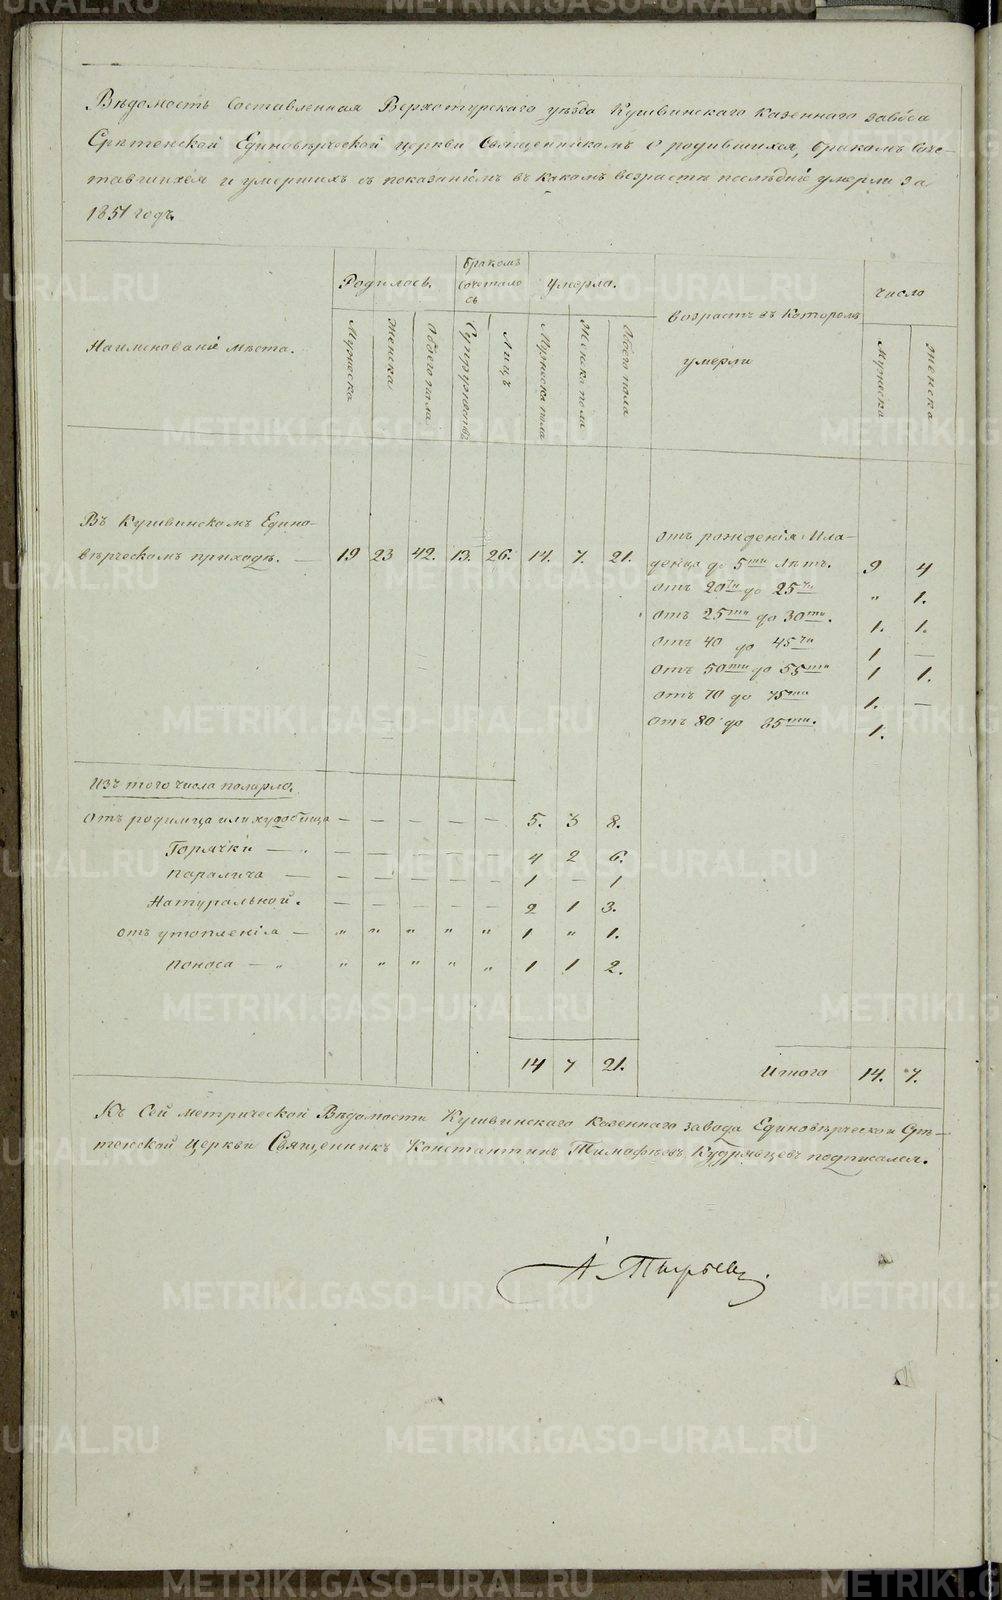 Вѣдомость Составленная Верхотурскаго уѣзда Кушвинскаго казеннаго завода
Срѣтенской Единовѣрческой церкви Священникомъ о родившихся, бракомъ Соче-
тавшихся и умершихъ съ показаніемъ въ какомъ возрастѣ послѣдніе умерли за
1851 годъ.
Наименованіе мѣста.
Родилось.
Бракомъ
Сочетало
сь
Умерло.
возрастъ въ котором
умерли
Число
Мужеска
Женска
Обоего пола
Супружествъ
Лицъ
Мужеска пола
Женска пола
Обоего пола
Мужеска
Женска
Въ Кушвинскомъ Едино-
вѣрческомъ приходѣ. — 19 23 42. 13. 26. 14. 7. 21.
отъ рожденія Мла-
денца до 5ти лѣтъ. 9 4
отъ 20ти до 25ти „ 1.
отъ 25ти до 30ти. 1. 1.
отъ 40 до 45ти 1 —
отъ 50ти до 55ти 1 1.
отъ 70 до 75ти 1. —
отъ 80 до 85ти. 1.
Изъ того числа померло.
Отъ родимца или худобища — — — — — 5. 3 8.
Горячки — „ — — — — — 4 2 6.
паралича — — — — — — 1 — 1
Натуральной. — — — — — 2 1 3.
отъ утопленія — „ „ „ „ „ 1 „ 1.
поноса — „ „ „ „ „ „ 1 1 2.
14 7 21.
Итого 14. 7.
Къ Сей метрической Вѣдомости Кушвинскаго казеннаго завода Единовѣрческой Срѣ-
тенской Церкви Священникъ Константинъ Тимофѣевъ Кудрявцевъ подписался.
METRIKI.GASO-URAL.RU